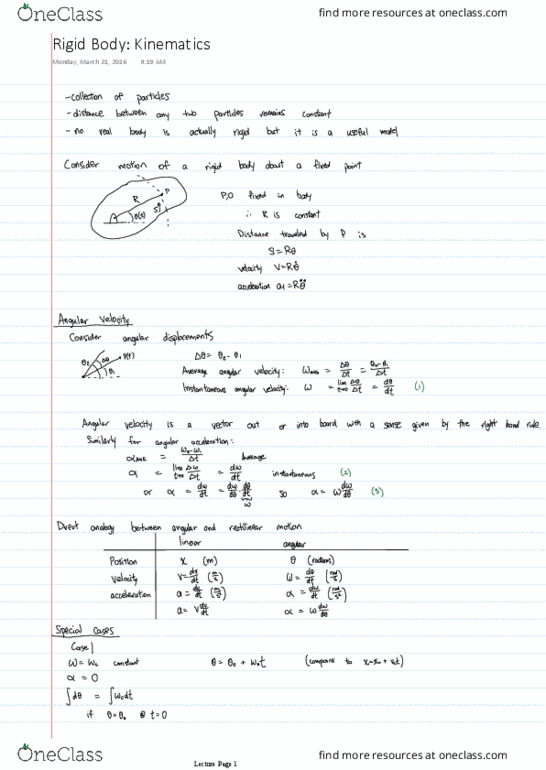 OneClass
find more resources at oneclass.com
Rigid Body: Kinematics
Monday, March 21, 2016 9:29 AM
-collection of particles
-distance between any two particles remains constant
-no real body is actually rigid but it is a useful model
Consider motion of a rigid body about a fixed point
R P
S
θ(t)
P,O fixed in body
∴ R is constant
Distance traveled by P is
S=Rθ
velocity V=Rθ̇
acceleration at=Rθ̈
Angular Velocity
Consider angular displacements
θ2 Δθ P(t)
θ1
Δθ= θ2-θ1
Average angular velocity: ωAVG = Δθ/Δt = θ2-θ1/Δt
Instantaneous angular velocity: ω = lim t→0 Δθ/Δt = dθ/dt (1)
Angular velocity is a vector out or into board with a sense given by the right hand rule
Similarly for angular acceleration:
αAVE = ω2-ω1/Δt Average
α = lim t→0 Δω/Δt = dω/dt instantaneous (2)
or α = dω/dt = dω/dθ dθ/dt ω so α = ω dω/dθ (3)
Direct analogy between angular and rectilinear motion
linear angular
Position x (m) θ (radians)
Velocity v=dx/dt (m/s) ω=dθ/dt (rad/s)
acceleration a=dv/dt (m/s²) α=dω/dt (rad/s²)
a= v dv/dx α= ω dω/dθ
Special Cases
Case 1
ω=ω0 constant θ=θ0 + ω0t (compare to x=x0 + vt)
α = 0
∫dθ = ∫ω0dt
if θ=θ0 @ t=0
OneClass
Lecture Page 1
find more resources at oneclass.com